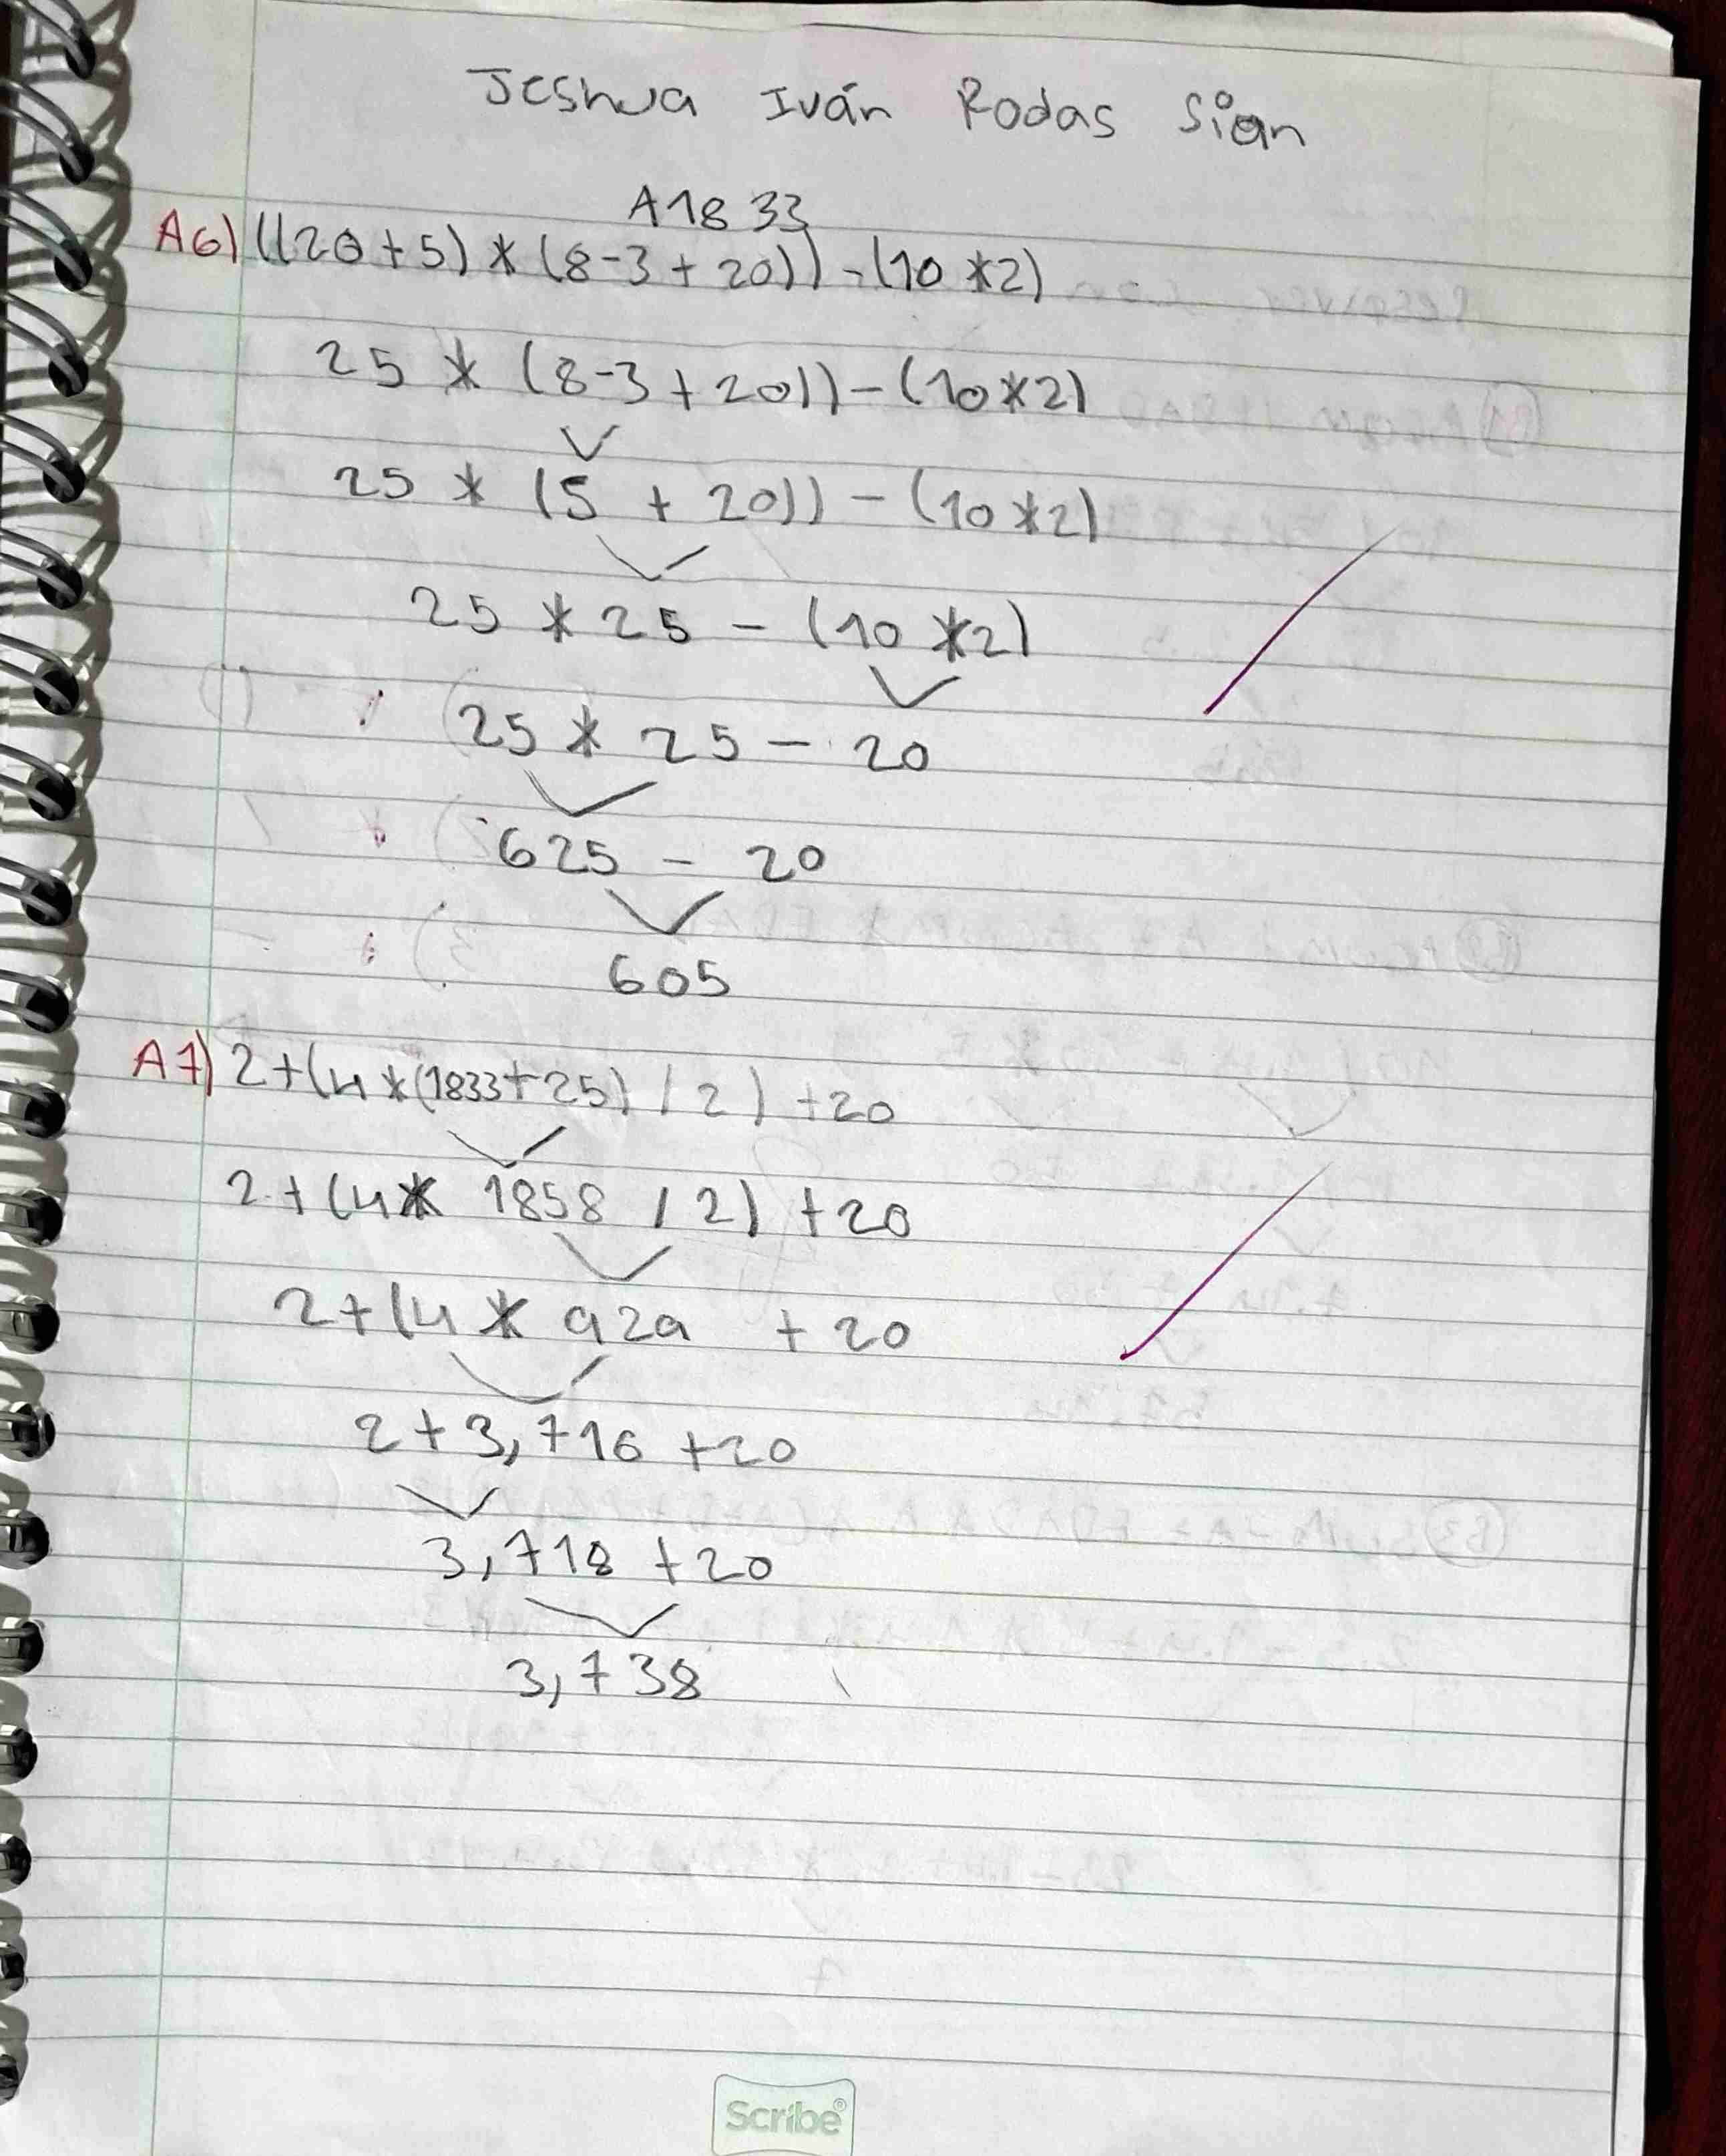 Jeshua Iván Rodas Sian
A1833
A6) ((20+5) * (8-3+20)) - (10*2)
25 * (8-3+20)) - (10*2)
25 * (5 + 20)) - (10*2)
25 * 25 - (10*2)
25 * 25 - 20
625 - 20
605
A7) 2+(4*(1833+25) / 2) +20
2+(4* 1858 / 2) +20
2+(4* 929 +20
2+3,716 +20
3,718 +20
3,738
Scribe®